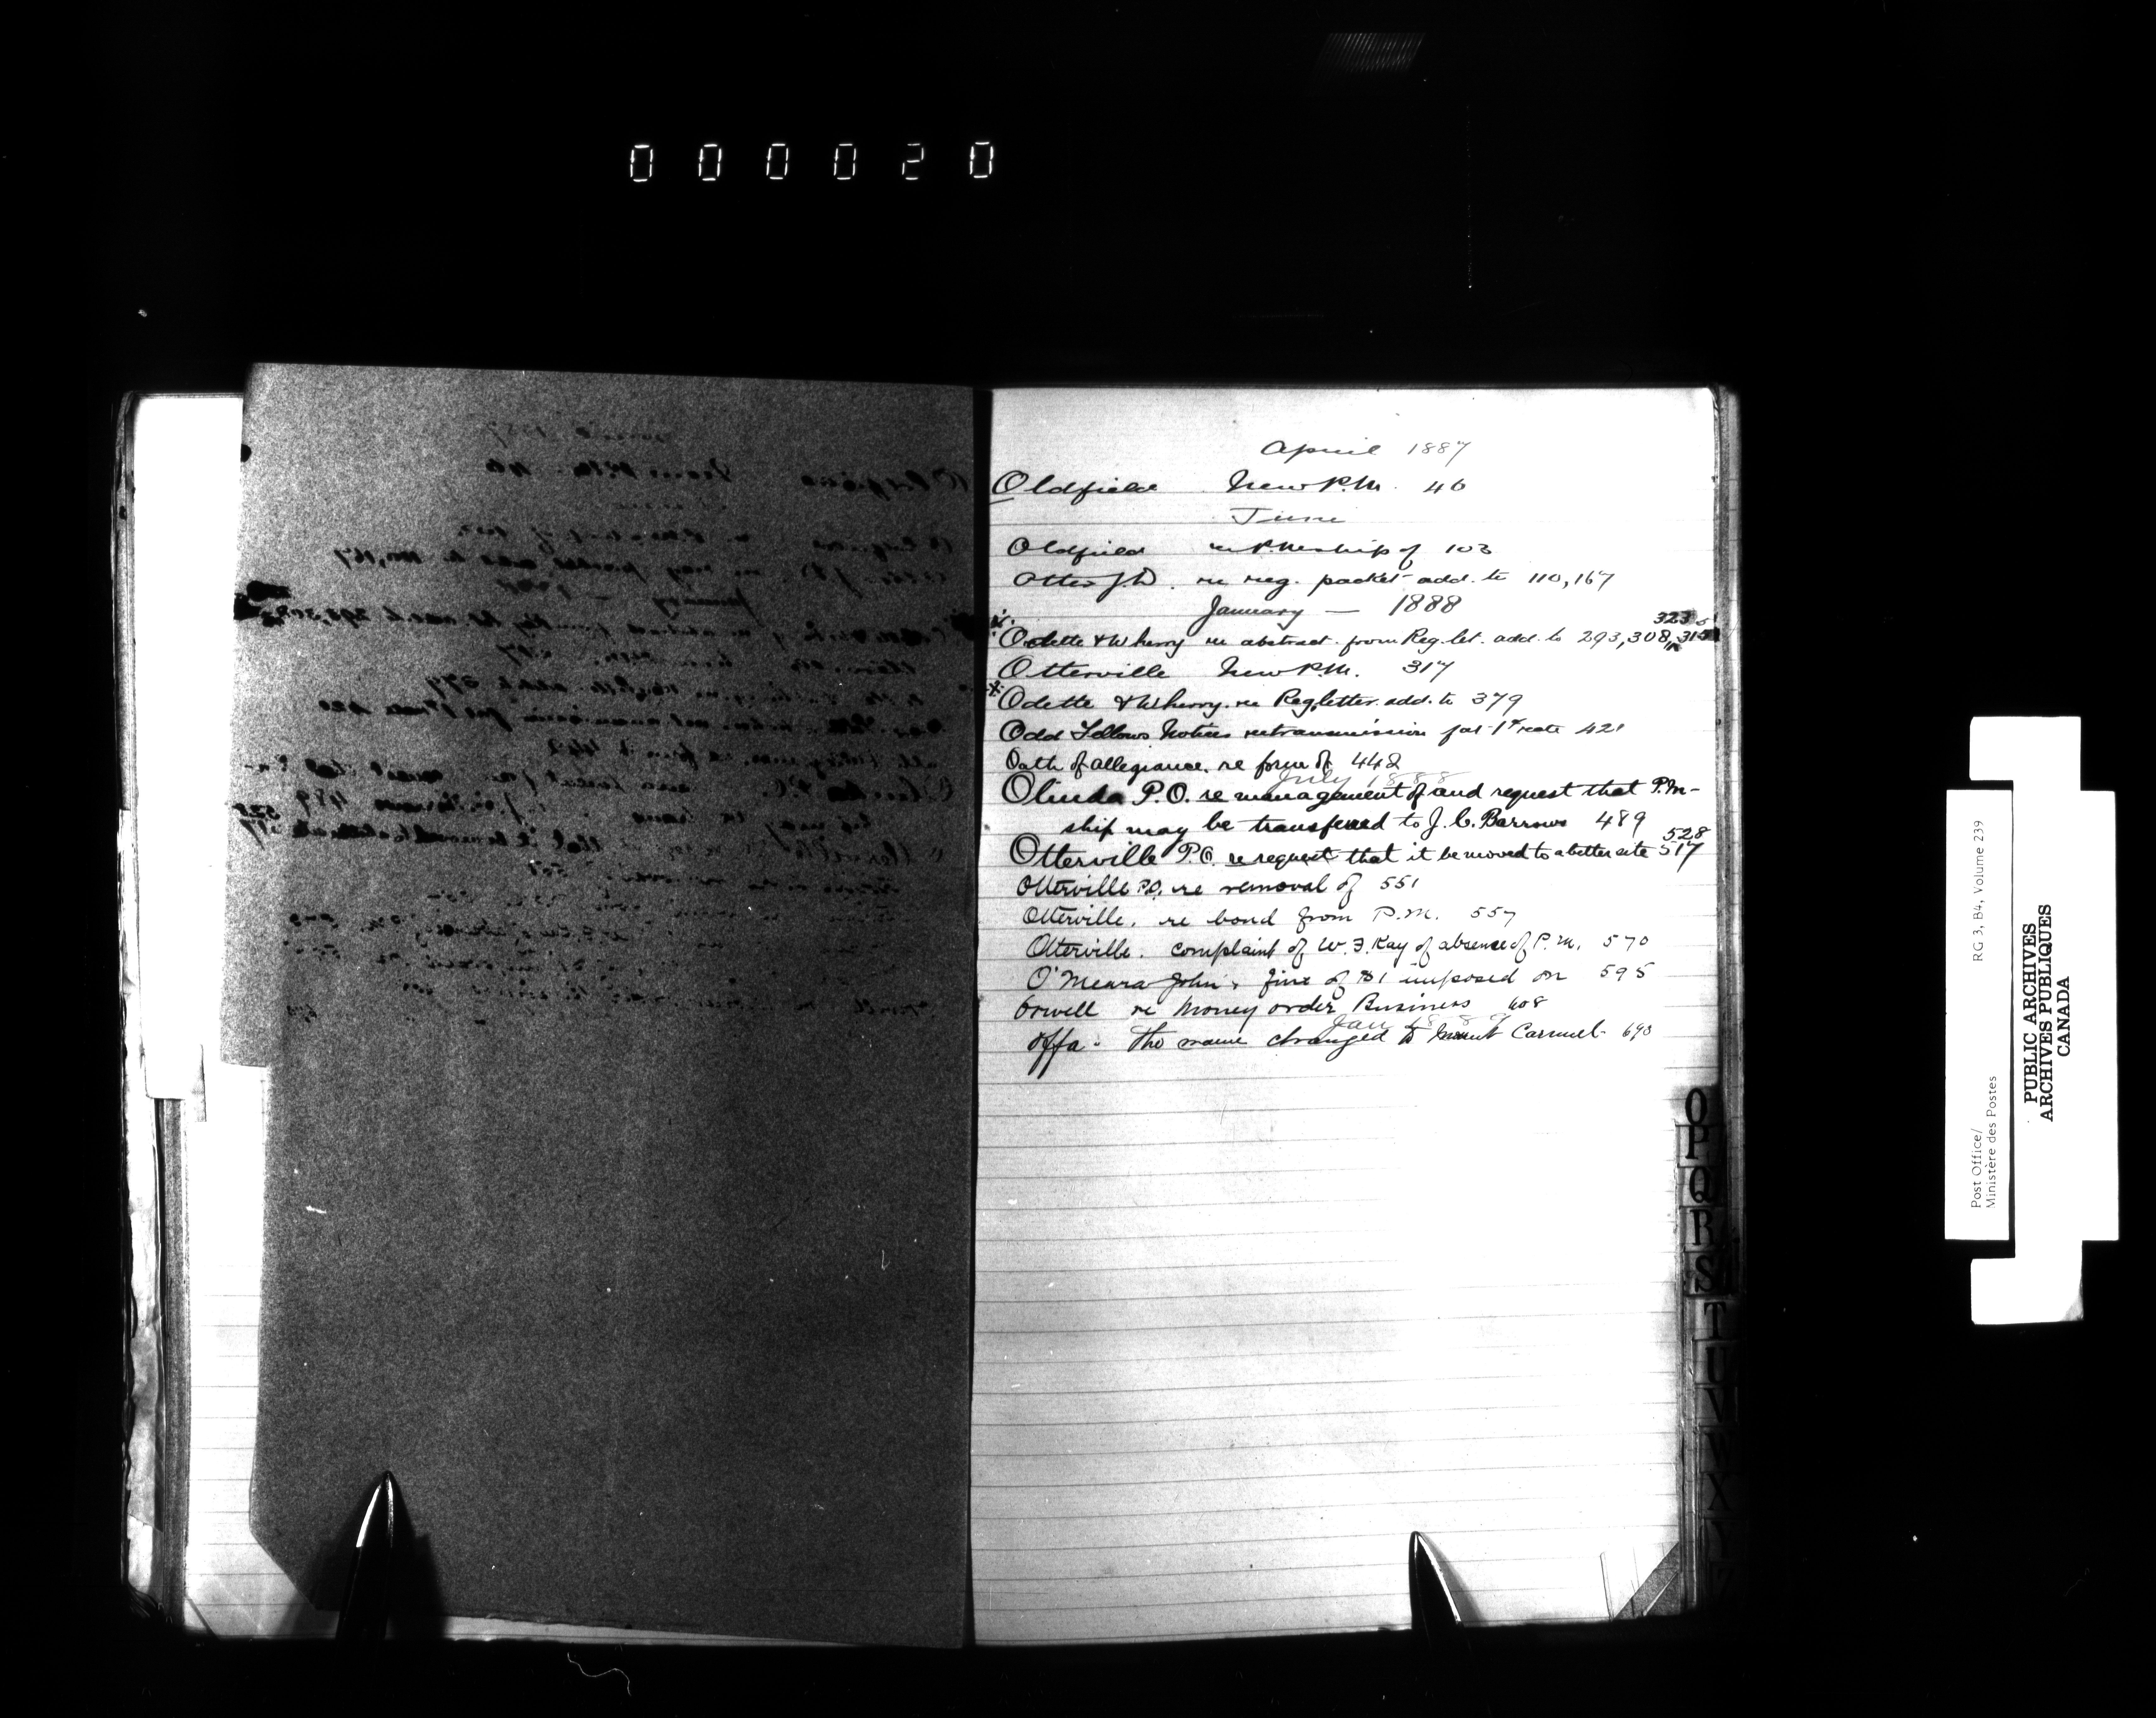 000020
April 1887
Oldfield New P.M. 46
June
Oldfield re P.Mship of 103
Otter J.D. re reg. packet add. to 110, 167
January — 1888
323
Odette & Wherry re abstract. from Reg. let. add. to 293, 308, 315
Otterville New P.M. 317
Odette & Wherry. re Reg. letter. add. to 379
Odd Fellows Notices re transmission for 1st rate 421
Oath of allegiance. re form of 442
July 1888
Olinda P.O. re management of and request that P.M-
ship may be transferred to J. C. Barrows 489
528
Otterville P.O. re request that it be moved to a better site 517
Otterville P.O. re removal of 551
Otterville. re bond from P.M. 557
Otterville. complaint of W. F. Kay of absence of P.M. 570
O'Meara John, fine of $1 imposed on 595
Orwell re Money order Business 608
Jan
Offa. The name changed to Mount Carmel 690
O
P
Q
R
S
T
U
V
W
X
Y
Z
Post Office/ RG 3, B4, Volume 239
Ministère des Postes
PUBLIC ARCHIVES
ARCHIVES PUBLIQUES
CANADA